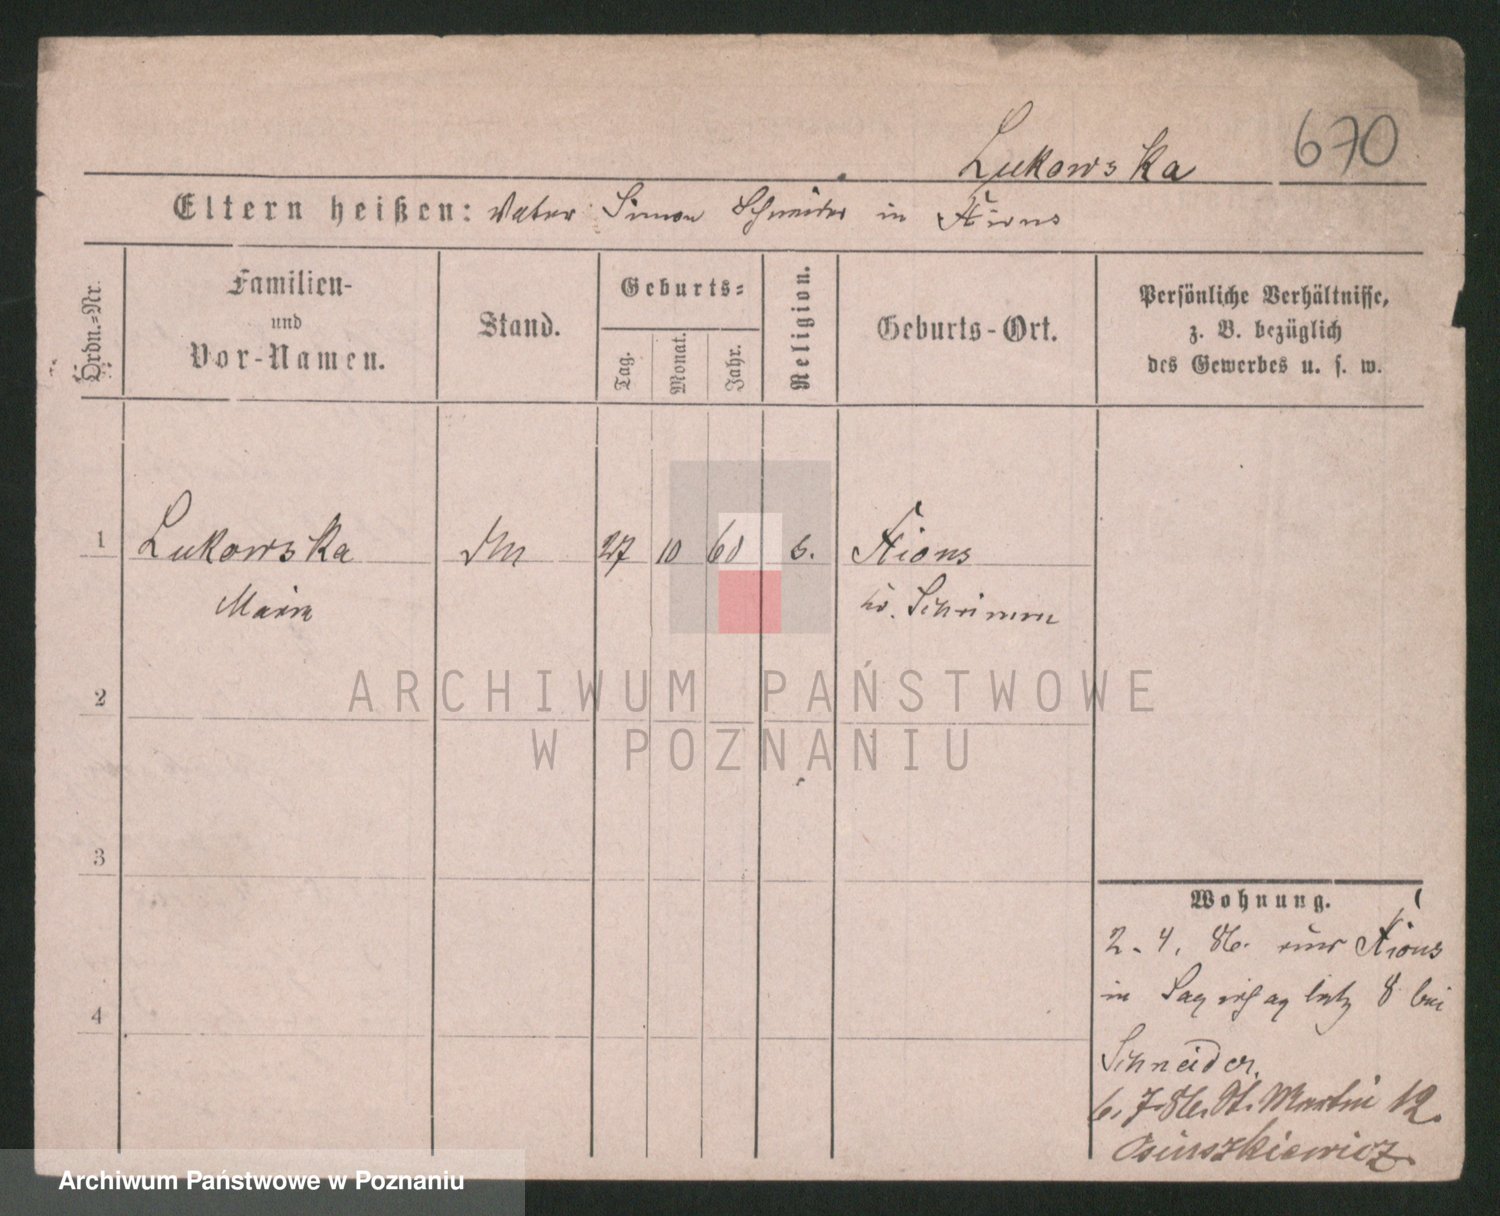 Lukowska 670
Eltern heißen: Vater Simon Schneider in Xions
Ordn.-Nr.
Familien-
und
Vor-Namen.
Stand.
Geburts-
Tag.
Monat.
Jahr.
Religion.
Geburts-Ort.
Persönliche Verhältnisse,
z. B. bezüglich
des Gewerbes u. s. w.
1 Lukowska 27 10 60 Xions
Maria Kr. Schrimm
2
3
4
Wohnung.
2. 4. 86. aus Xions
in 8 bei
Schneider.
6. 7. 86. St. Martin 12.
ARCHIWUM PAŃSTWOWE
W POZNANIU
Archiwum Państwowe w Poznaniu